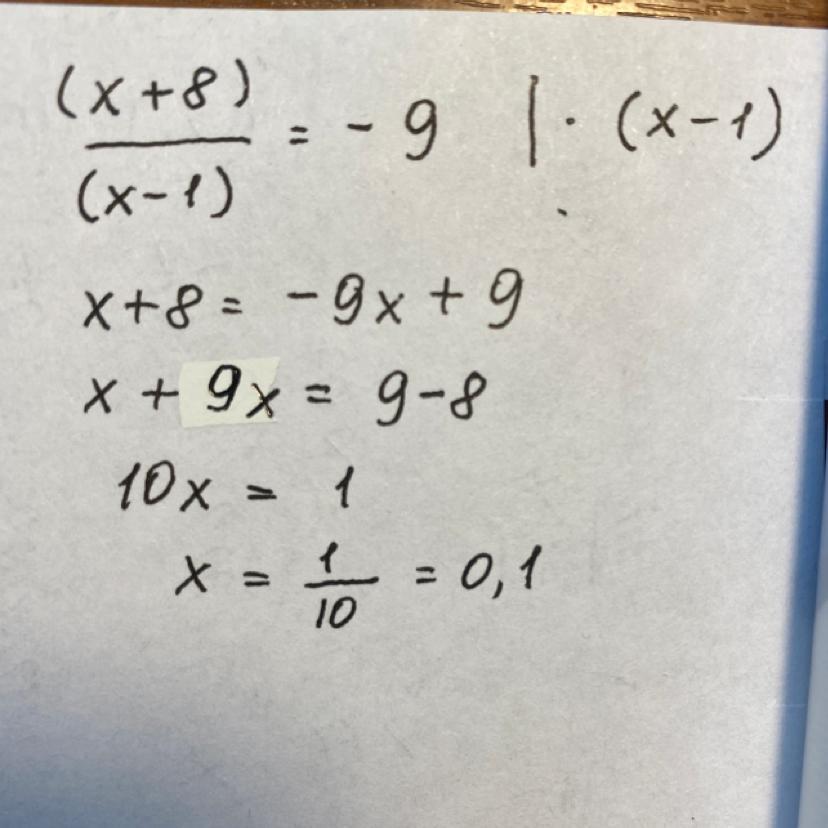 (x+8)/(x-1) = -9 | · (x-1)
x+8 = -9x + 9
x + 9x = 9-8
10x = 1
x = 1/10 = 0,1